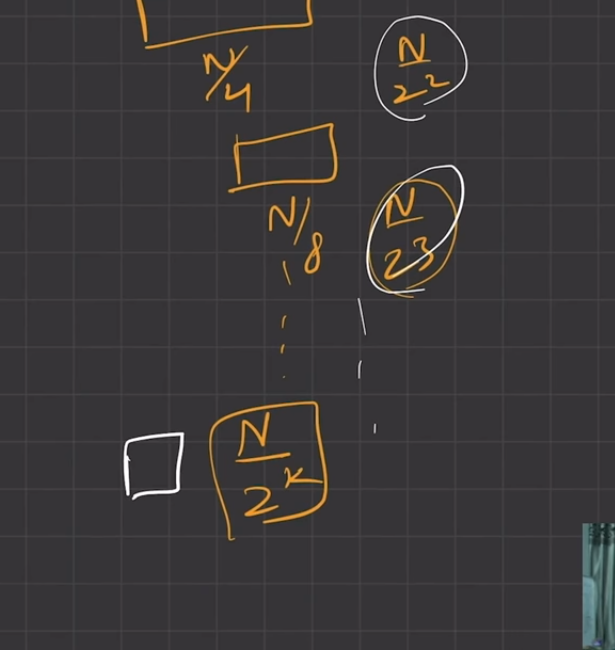 N/4
N/2²
N/8
N/2³
N/2ᵏ